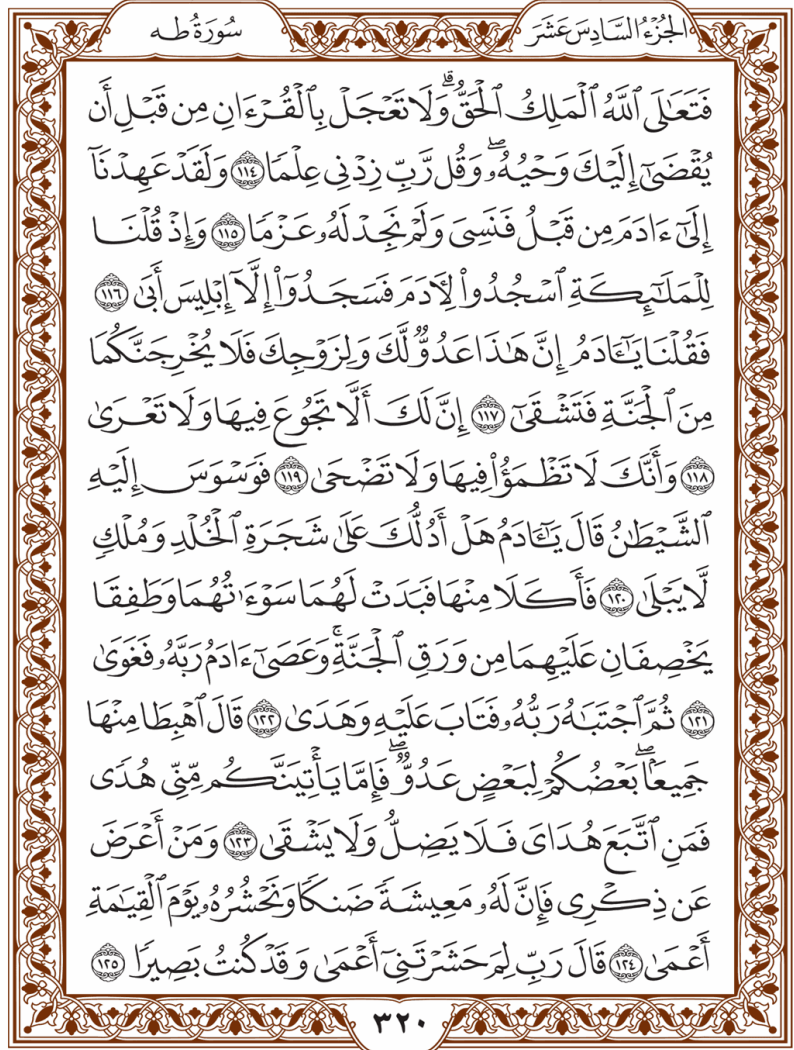 الجزء السادس عشر
سورة طه
فَتَعَٰلَى ٱللَّهُ ٱلْمَلِكُ ٱلْحَقُّ ۗ وَلَا تَعْجَلْ بِٱلْقُرْءَانِ مِن قَبْلِ أَن
يُقْضَىٰٓ إِلَيْكَ وَحْيُهُۥ ۖ وَقُل رَّبِّ زِدْنِى عِلْمًا ١١٤ وَلَقَدْ عَهِدْنَآ
إِلَىٰٓ ءَادَمَ مِن قَبْلُ فَنَسِىَ وَلَمْ نَجِدْ لَهُۥ عَزْمًا ١١٥ وَإِذْ قُلْنَا
لِلْمَلَٰٓئِكَةِ ٱسْجُدُوا۟ لِـَٔادَمَ فَسَجَدُوٓا۟ إِلَّآ إِبْلِيسَ أَبَىٰ ١١٦
فَقُلْنَا يَٰٓـَٔادَمُ إِنَّ هَٰذَا عَدُوٌّ لَّكَ وَلِزَوْجِكَ فَلَا يُخْرِجَنَّكُمَا
مِنَ ٱلْجَنَّةِ فَتَشْقَىٰٓ ١١٧ إِنَّ لَكَ أَلَّا تَجُوعَ فِيهَا وَلَا تَعْرَىٰ
١١٨ وَأَنَّكَ لَا تَظْمَؤُا۟ فِيهَا وَلَا تَضْحَىٰ ١١٩ فَوَسْوَسَ إِلَيْهِ
ٱلشَّيْطَٰنُ قَالَ يَٰٓـَٔادَمُ هَلْ أَدُلُّكَ عَلَىٰ شَجَرَةِ ٱلْخُلْدِ وَمُلْكٍ
لَّا يَبْلَىٰ ١٢٠ فَأَكَلَا مِنْهَا فَبَدَتْ لَهُمَا سَوْءَٰتُهُمَا وَطَفِقَا
يَخْصِفَانِ عَلَيْهِمَا مِن وَرَقِ ٱلْجَنَّةِ ۚ وَعَصَىٰٓ ءَادَمُ رَبَّهُۥ فَغَوَىٰ
١٢١ ثُمَّ ٱجْتَبَٰهُ رَبُّهُۥ فَتَابَ عَلَيْهِ وَهَدَىٰ ١٢٢ قَالَ ٱهْبِطَا مِنْهَا
جَمِيعًۢا ۖ بَعْضُكُمْ لِبَعْضٍ عَدُوٌّ ۖ فَإِمَّا يَأْتِيَنَّكُم مِّنِّى هُدًى
فَمَنِ ٱتَّبَعَ هُدَاىَ فَلَا يَضِلُّ وَلَا يَشْقَىٰ ١٢٣ وَمَنْ أَعْرَضَ
عَن ذِكْرِى فَإِنَّ لَهُۥ مَعِيشَةً ضَنكًا وَنَحْشُرُهُۥ يَوْمَ ٱلْقِيَٰمَةِ
أَعْمَىٰ ١٢٤ قَالَ رَبِّ لِمَ حَشَرْتَنِىٓ أَعْمَىٰ وَقَدْ كُنتُ بَصِيرًا ١٢٥
٣٢٠